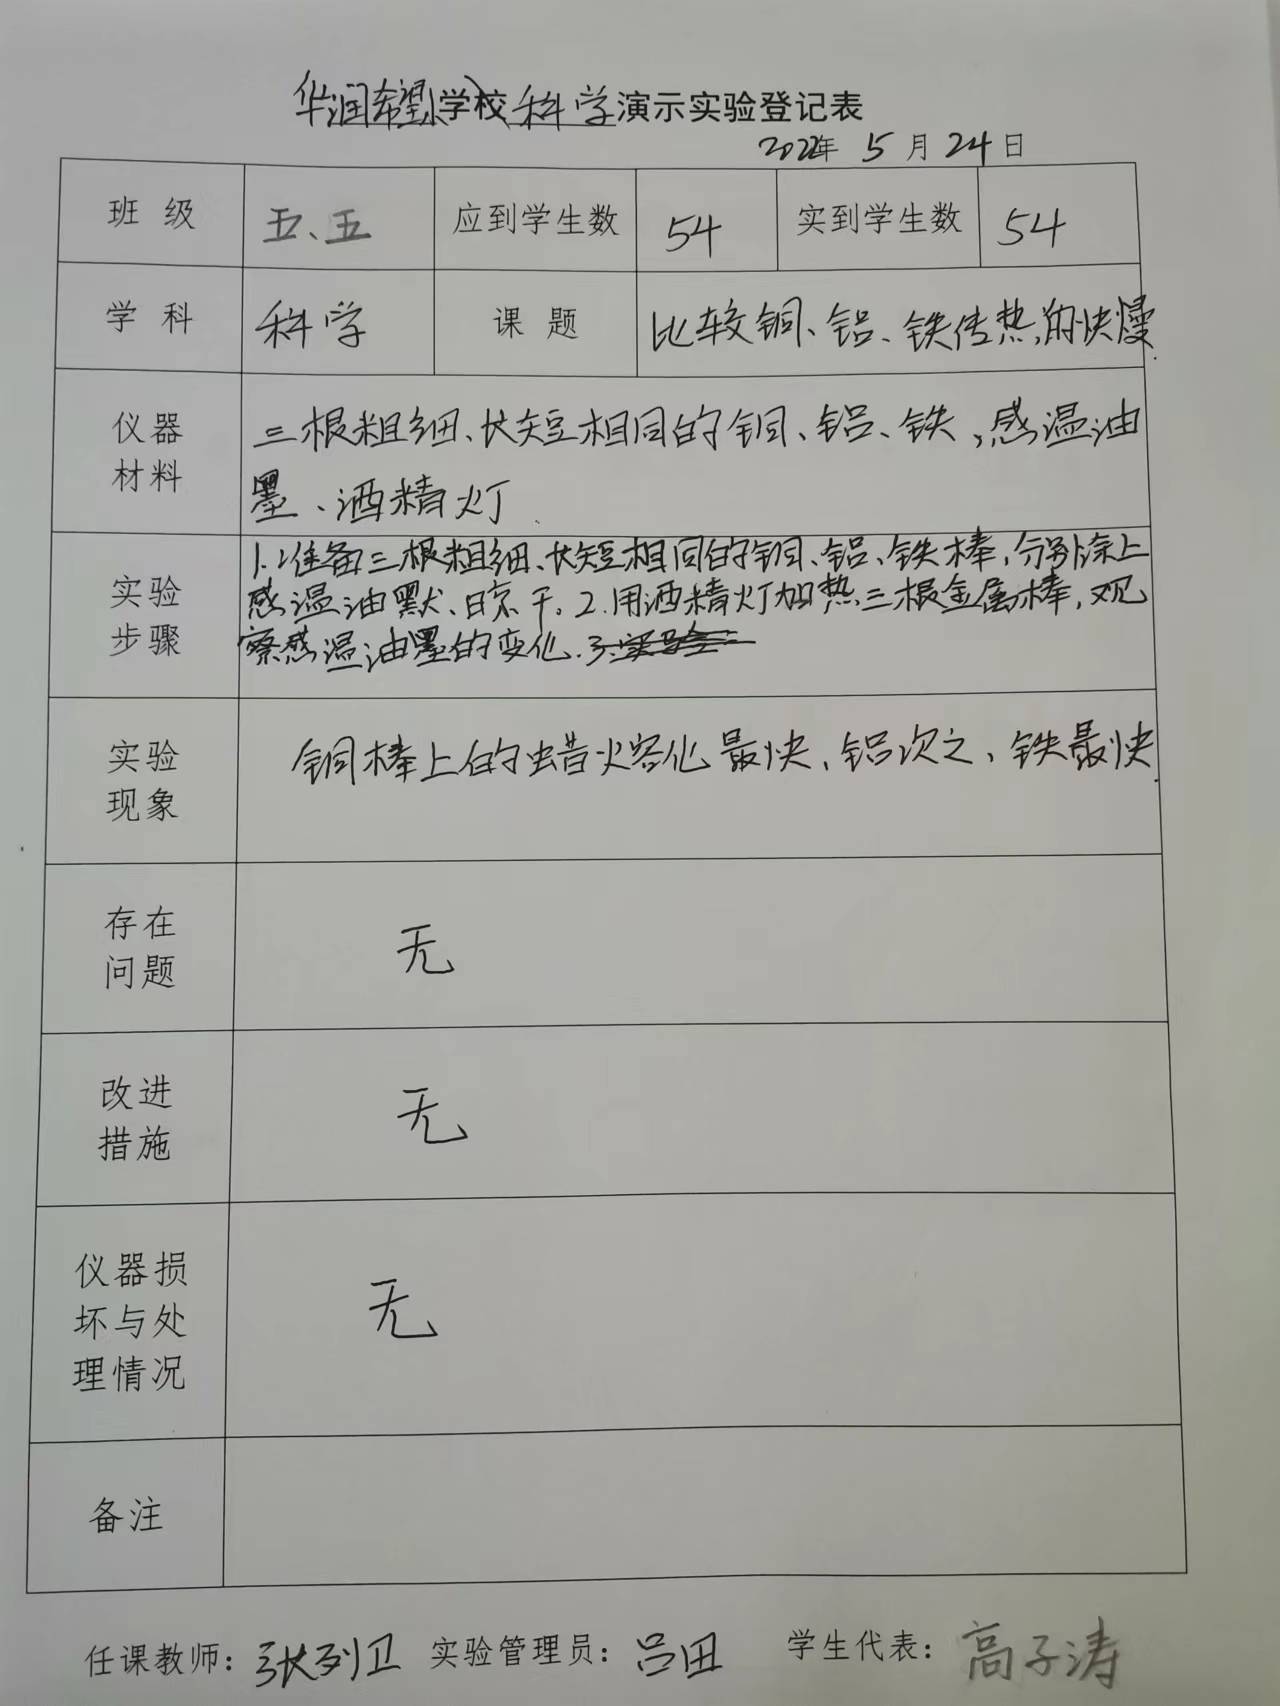 华润希望小学校科学演示实验登记表
2022年 5 月 24 日
班 级 五、五 应到学生数 54 实到学生数 54
学 科 科学 课 题 比较铜、铝、铁传热的快慢.
仪器
材料
三根粗细、长短相同的铜、铝、铁、感温油
墨、酒精灯.
实验
步骤
1.准备三根粗细、长短相同的铜、铝、铁棒,分别涂上
感温油默、晾干. 2.用酒精灯加热三根金属棒,观
察感温油墨的变化. 3.实验
实验
现象
铜棒上的蜡火容化最快、铝次之、铁最快.
存在
问题
无
改进
措施
无
仪器损
坏与处
理情况
无
备注
任课教师: 张列卫 实验管理员: 吕田 学生代表: 高子涛